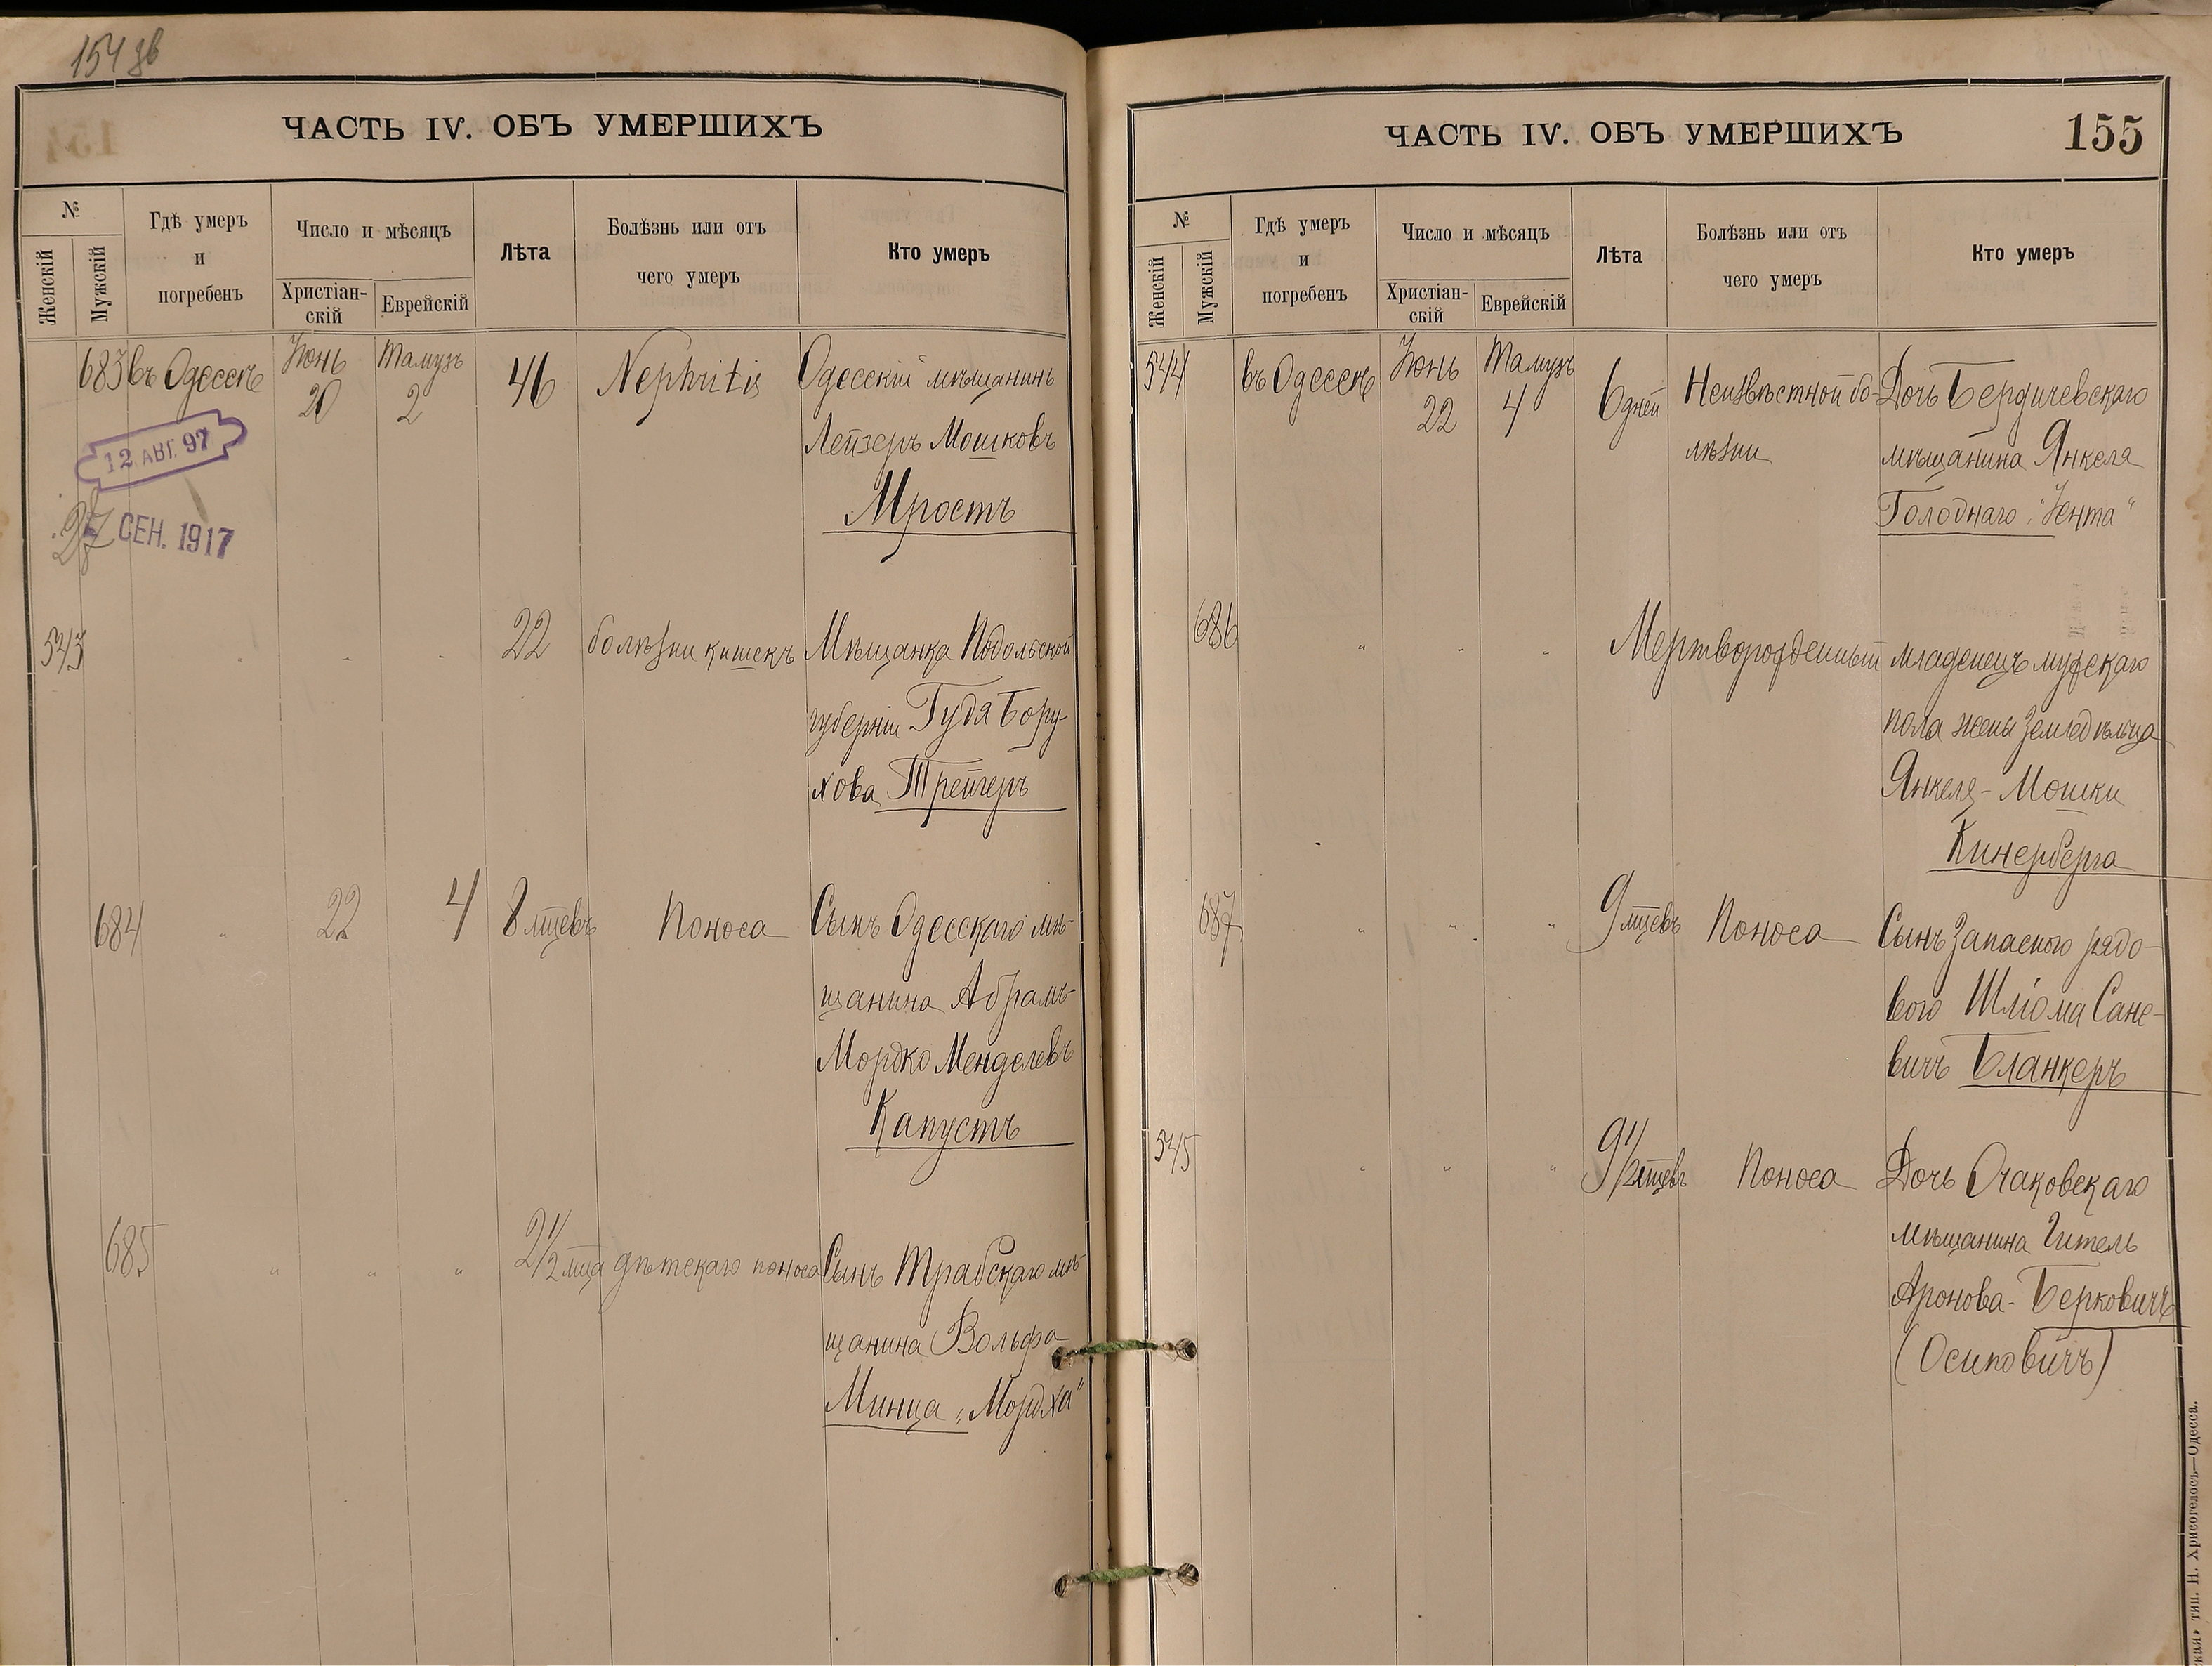 154 зв
ЧАСТЬ IV. ОБЪ УМЕРШИХЪ
№
Женскій
Мужскій
Гдѣ умеръ
и
погребенъ
Число и мѣсяцъ
Христіан-
скій
Еврейскій
Лѣта
Болѣзнь или отъ
чего умеръ
Кто умеръ
683 въ Одессѣ Іюнь 20 Тамузъ 2 46 Nephritis Одесскій мѣщанинъ
Лейзеръ Мошковъ
Мростъ
12 АВГ. 97
27 СЕН. 1917
543 " " " 22 болѣзни кишекъ Мѣщанка Подольской
губерніи Гудя Бору-
хова Трейгеръ
684 " 22 4 8 мцевъ Поноса Сынъ Одесскаго мѣ-
щанина Абрамъ-
Мордко Менделевъ
Капустъ
685 " " " 2 1/2 мца дѣтскаго поноса Сынъ Трабскаго мѣ-
щанина Вольфа
Минца „Мордха"
ЧАСТЬ IV. ОБЪ УМЕРШИХЪ
155
№
Женскій
Мужскій
Гдѣ умеръ
и
погребенъ
Число и мѣсяцъ
Христіан-
скій
Еврейскій
Лѣта
Болѣзнь или отъ
чего умеръ
Кто умеръ
544 въ Одессѣ Іюнь 22 Тамузъ 4 6 дней Неизвѣстной бо- Дочь Бердичевскаго
лѣзни мѣщанина Янкеля
Голоднаго "Іента"
686 " " " Мертворожденный младенецъ мужскаго
пола жены земледѣльца
Янкеля-Мошки
Кинерберга
687 " " " 9 мцевъ Поноса Сынъ Запаснаго рядо-
вого Шліома Сане-
вичъ Бланкеръ
545 " " " 9 1/2 мцевъ Поноса Дочь Очаковскаго
мѣщанина Гитель
Аронова-Берковичъ
(Осиповичъ)
тип. Н. Хрисогелосъ—Одесса.